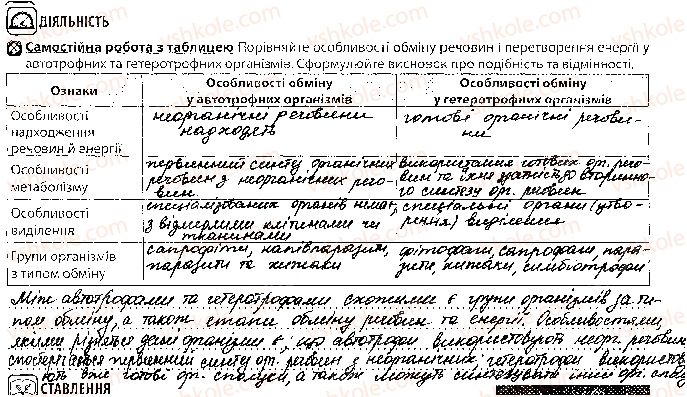 ДІЯЛЬНІСТЬ
Самостійна робота з таблицею Порівняйте особливості обміну речовин і перетворення енергії у
автотрофних та гетеротрофних організмів. Сформулюйте висновок про подібність та відмінності.
Ознаки
Особливості обміну
у автотрофних організмів
Особливості обміну
у гетеротрофних організмів
Особливості
надходження
речовин й енергії
неорганічні речовини
надходять
готові органічні речови-
ни
Особливості
метаболізму
первинний синтез органічних
речовин з неорганічних речо-
вин
використання готових ор. речо-
вин та їхня здатність до вторинно-
го синтезу ор. речовин
Особливості
виділення
спеціалізованих органів немає,
з відмерлими клітинами чи
тканинами
спеціальні органи (утво-
рення) виділення
Групи організмів
з типом обміну
сапрофіти, напівпаразити,
паразити та хижаки
фітофаги, сапрофаги, пара-
зити, хижаки, симбіотрофи
Між автотрофами та гетеротрофами схожими є групи організмів за ти-
пом обміну, а також етапи обміну речовин та енергії. Особливостями,
якими різняться дані організми є, що автотрофи використовують неорг. речовини,
первинний синтез ор. речовин з неорганічних, гетеротрофи використову-
ють вже готові ор. сполуки, а також можуть синтезувати інші ор. спол
СТАВЛЕННЯ